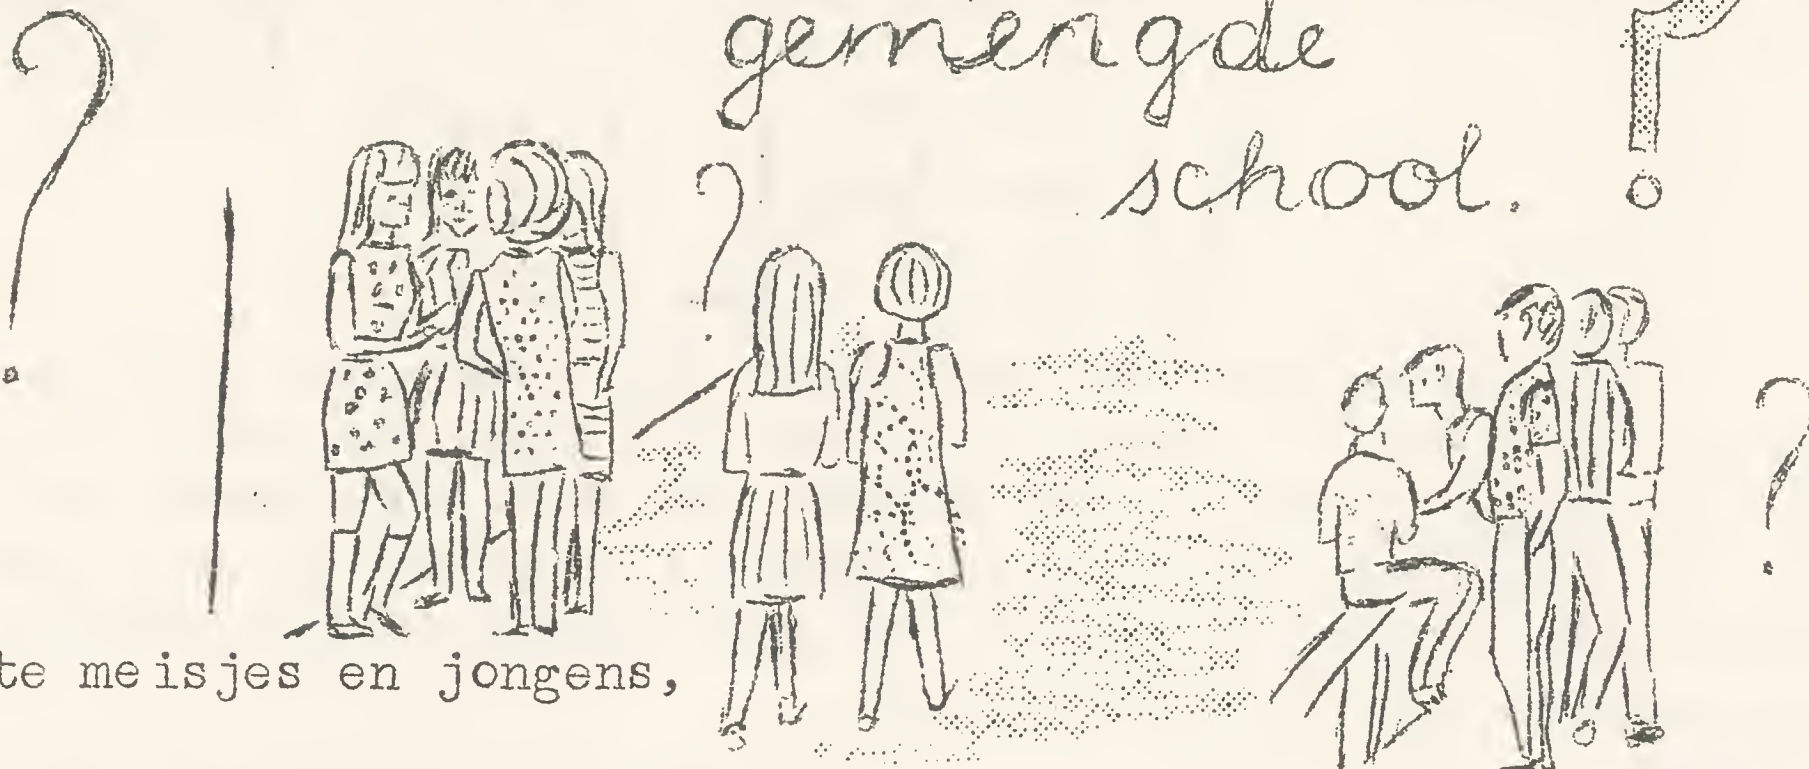 gemengde
school.
te meisjes en jongens,